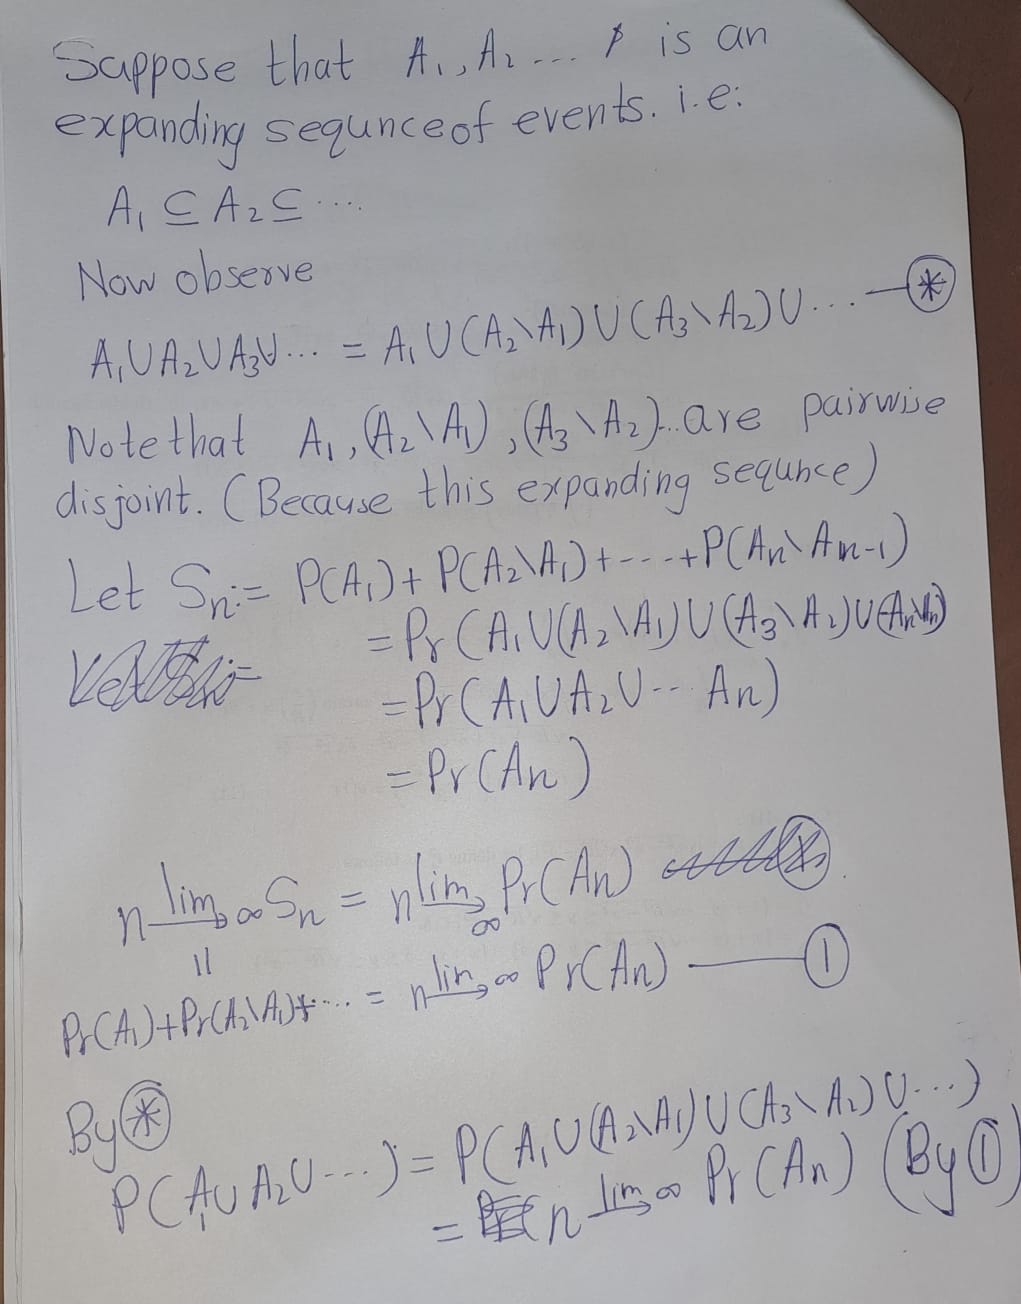 Suppose that A₁, A₂ ... is an
expanding sequnce of events. i.e:
A₁ ⊆ A₂ ⊆ ....
Now observe
A₁∪A₂∪A₃∪... = A₁∪(A₂\A₁)∪(A₃\A₂)∪... —⊛
Note that A₁, (A₂\A₁), (A₃\A₂)... are pairwise
disjoint. (Because this expanding sequnce)
Let Sₙ:= P(A₁)+P(A₂\A₁)+----+P(Aₙ\Aₙ₋₁)
= Pr(A₁∪(A₂\A₁)∪(A₃\A₂)∪
= Pr(A₁∪A₂∪-- Aₙ)
= Pr(Aₙ)
lim n→∞ Sₙ = lim n→∞ Pr(Aₙ)
||
Pr(A₁)+Pr(A₂\A₁)+.... = lim n→∞ Pr(Aₙ) —①
By ⊛
P(A₁∪A₂∪---) = P(A₁∪(A₂\A₁)∪(A₃\A₂)∪...)
= lim n→∞ Pr(Aₙ) (By ①)